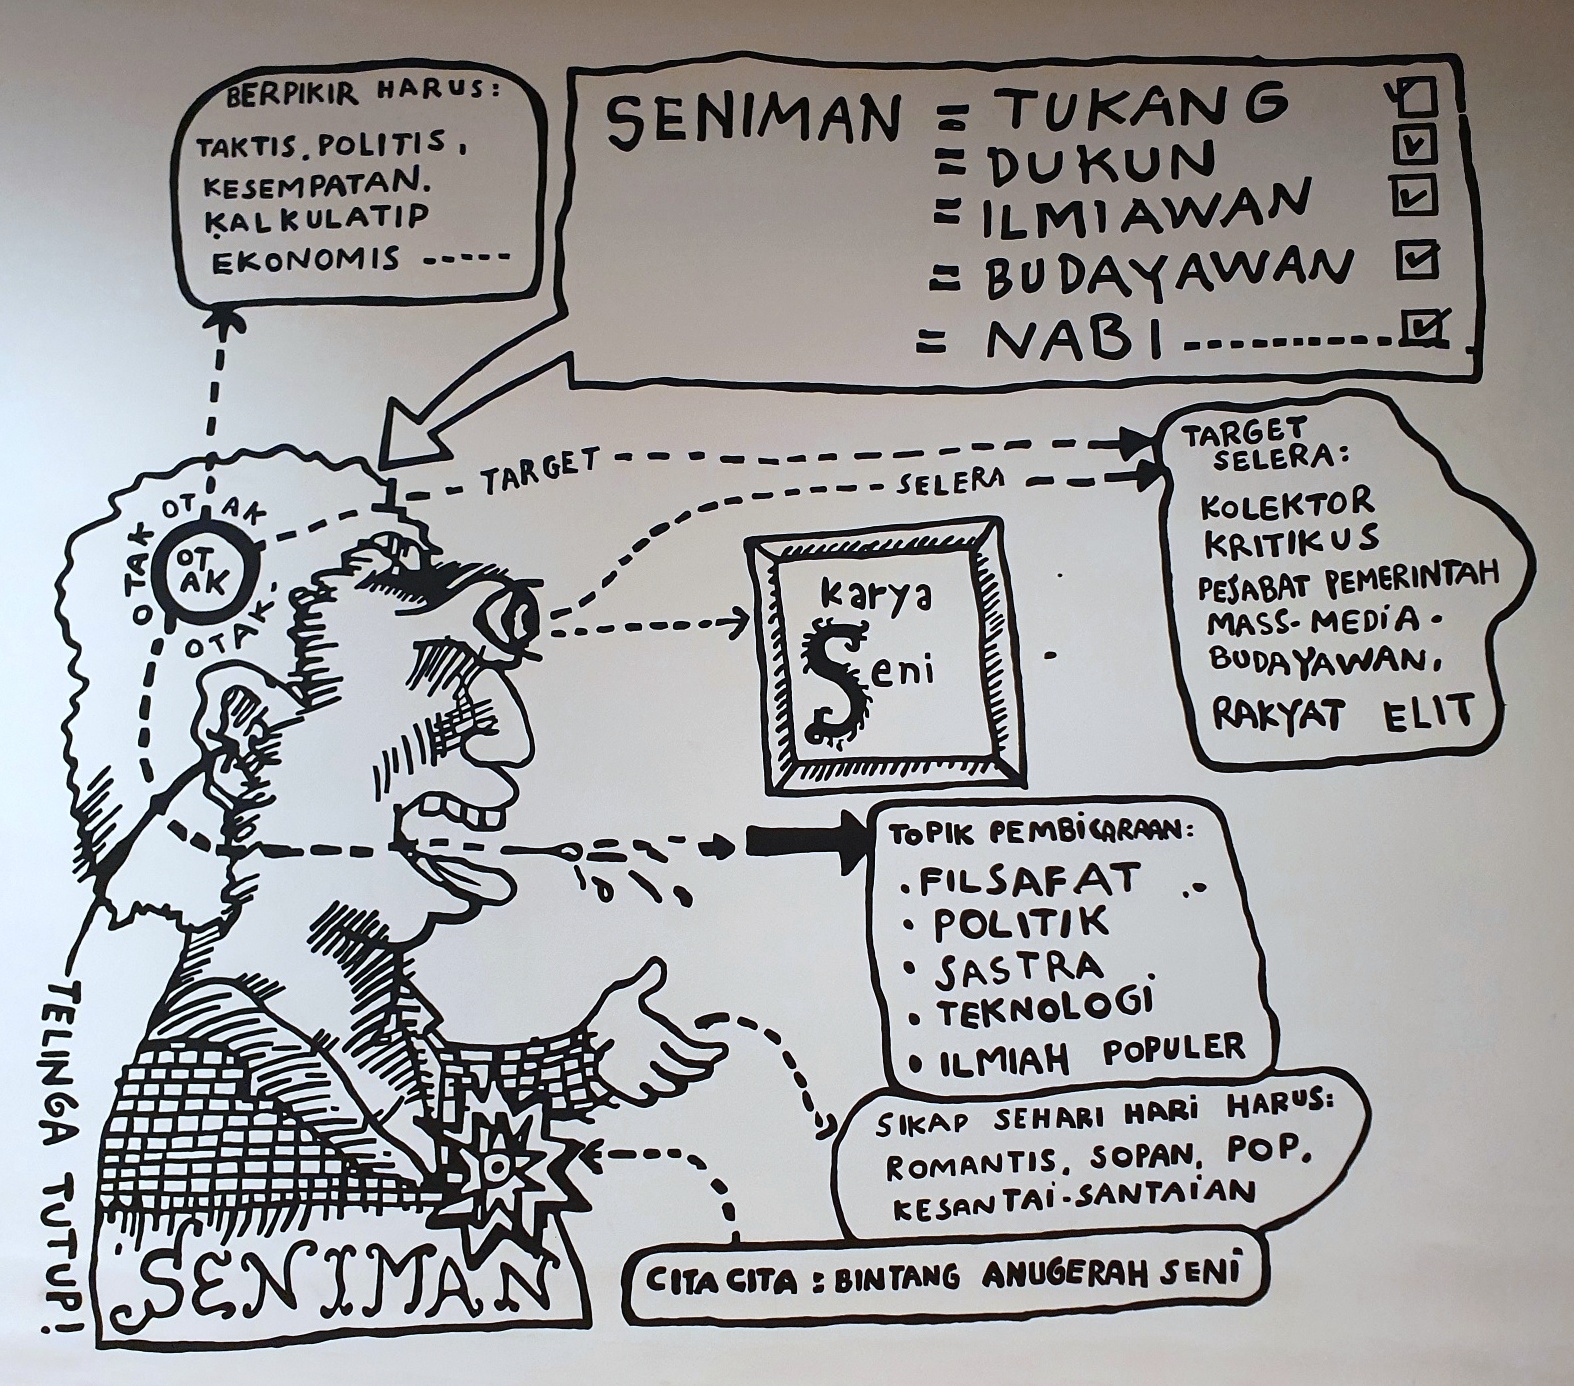 BERPIKIR HARUS:
TAKTIS. POLITIS,
KESEMPATAN.
KALKULATIP
EKONOMIS -----
SENIMAN = TUKANG
= DUKUN
= ILMIAWAN
= BUDAYAWAN
= NABI
TARGET
SELERA
TARGET
SELERA:
KOLEKTOR
KRITIKUS
PEJABAT PEMERINTAH
MASS-MEDIA.
BUDAYAWAN.
RAKYAT ELIT
OTAK
OT AK
OT
AK
OTAK
karya
Seni
TOPIK PEMBICARAAN:
. FILSAFAT
• POLITIK
• SASTRA
• TEKNOLOGi
• ILMIAH POPULER
SIKAP SEHARI HARi HARUS:
ROMANTIS. SOPAN. POP.
KESANTAi-SANTAiAN
CITA CITA : BINTANG ANUGERAH SENi
TELINGA TUTUP!
SENIMAN